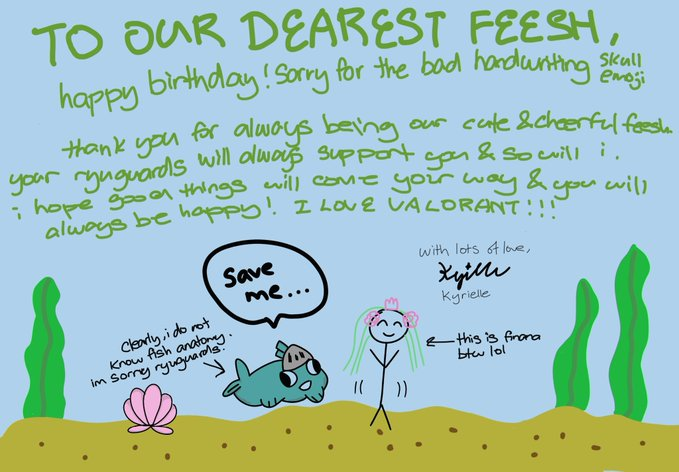 TO OUR DEAREST FEESH,
happy birthday! Sorry for the bad handwriting skull emoji
thank you for always being our cute & cheerful feesh.
your ryuguards will always support you & so will i.
i hope good things will come your way & you will
always be happy! I LOVE VALORANT!!!
with lots of love,
Kyrielle
Save
me...
Clearly, i do not
know fish anatomy.
im sorry ryuguards.
this is finana
btw lol